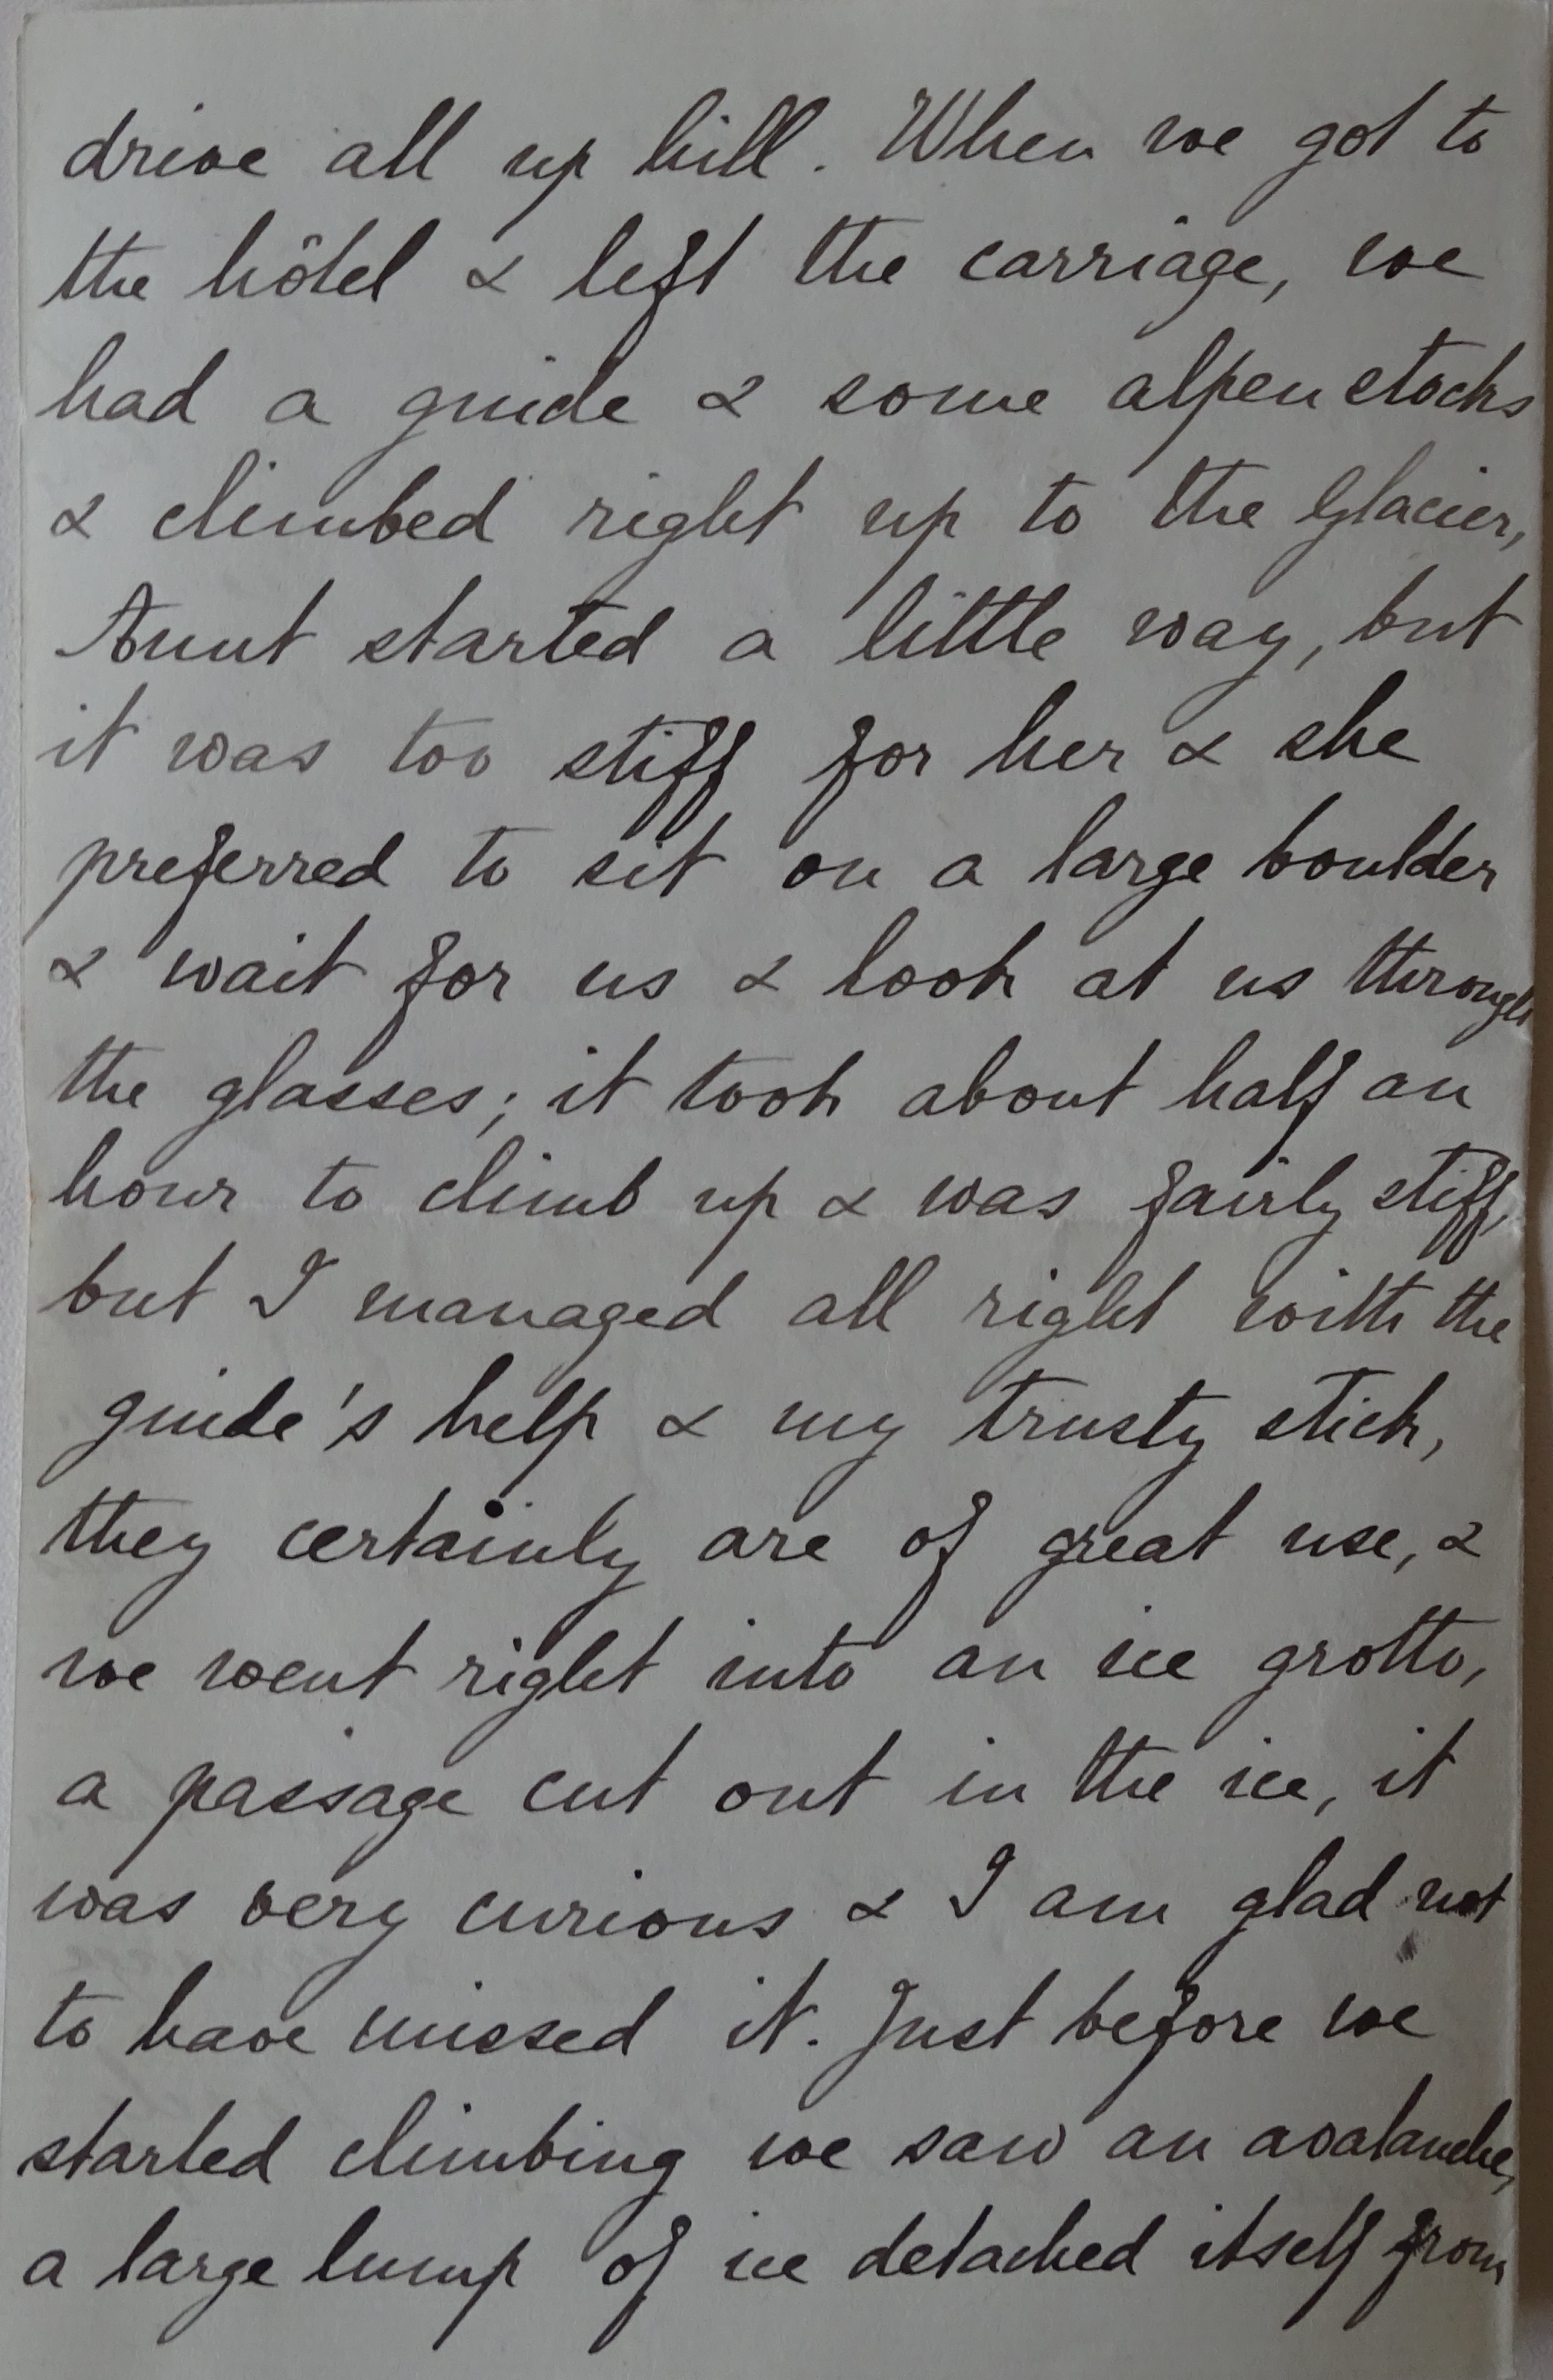 drive all up hill. When we got to
the hôtel & left the carriage, we
had a guide & some alpenstocks
& climbed right up to the Glacier,
Aunt started a little way, but
it was too stiff for her & she
preferred to sit on a large boulder
& wait for us & look at us through
the glasses; it took about half an
hour to climb up & was fairly stiff,
but I managed all right with the
guide's help & my trusty stick,
they certainly are of great use, &
we went right into an ice grotto,
a passage cut out in the ice, it
was very curious & I am glad not
to have missed it. Just before we
started climbing we saw an avalanche,
a large lump of ice detached itself from